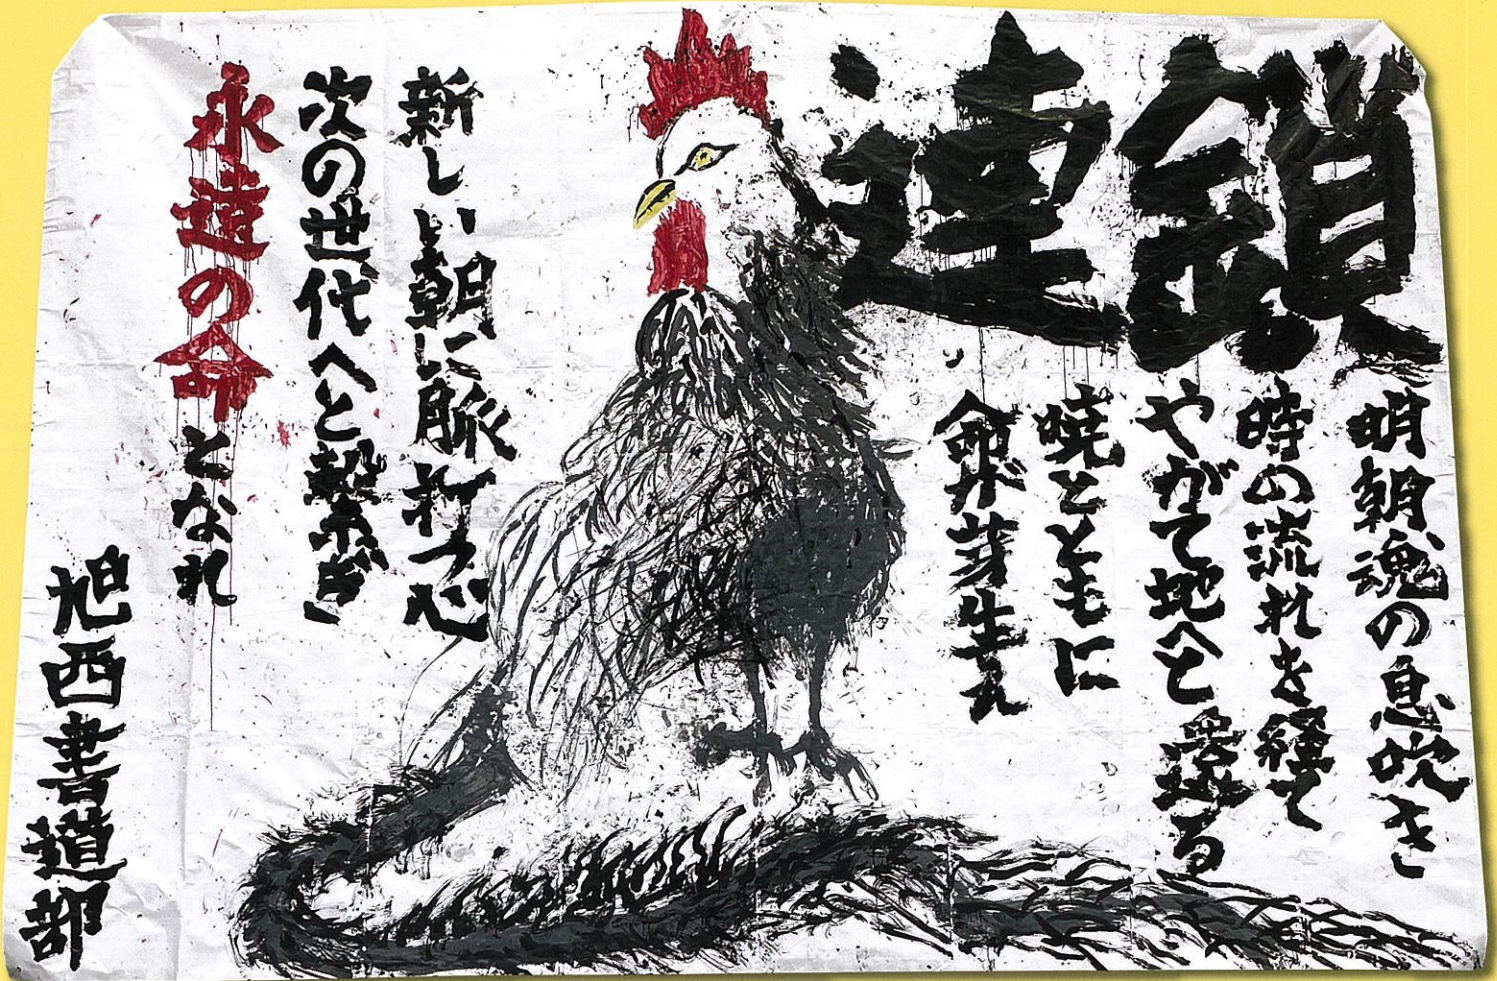 連鎖
明朝魂の息吹き
時の流れを経て
やがて地へと還る
暁とともに
命が芽生え
新しい朝に脈打つ心
次の世代へと繋ぎ
永遠の命となれ
旭西書道部